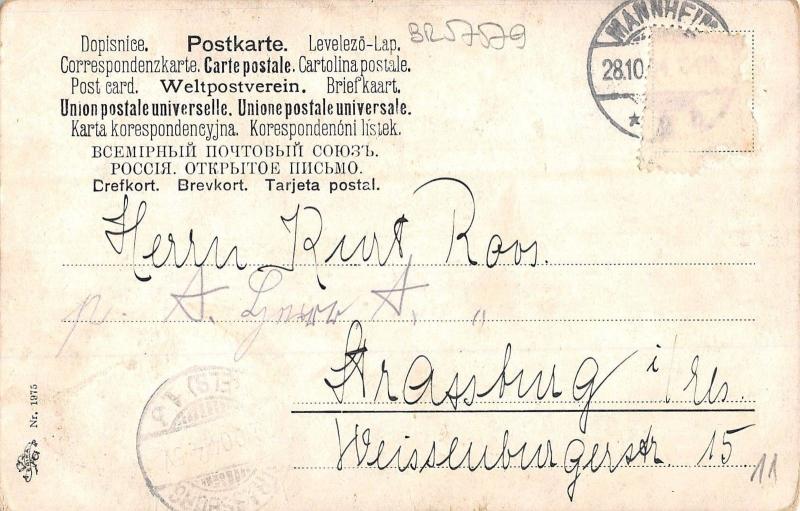 BR57579
Dopisnice. Postkarte. Levelező-Lap.
Correspondenzkarte. Carte postale. Cartolina postale.
Post card. Weltpostverein. Briefkaart.
Union postale universelle. Unione postale universale.
Karta korespondencyjna. Korespondenóni lístek.
ВСЕМІРНЫЙ ПОЧТОВЫЙ СОЮЗЪ.
РОССІЯ. ОТКРЫТОЕ ПИСЬМО.
Crefkort. Brevkort. Tarjeta postal.
MANNHEIM
28.10.
Herrn Kurt Roos.
p. A. Herr A. "
Strassburg i/Els.
Weissenburgerstr. 15
11
Nr. 1975